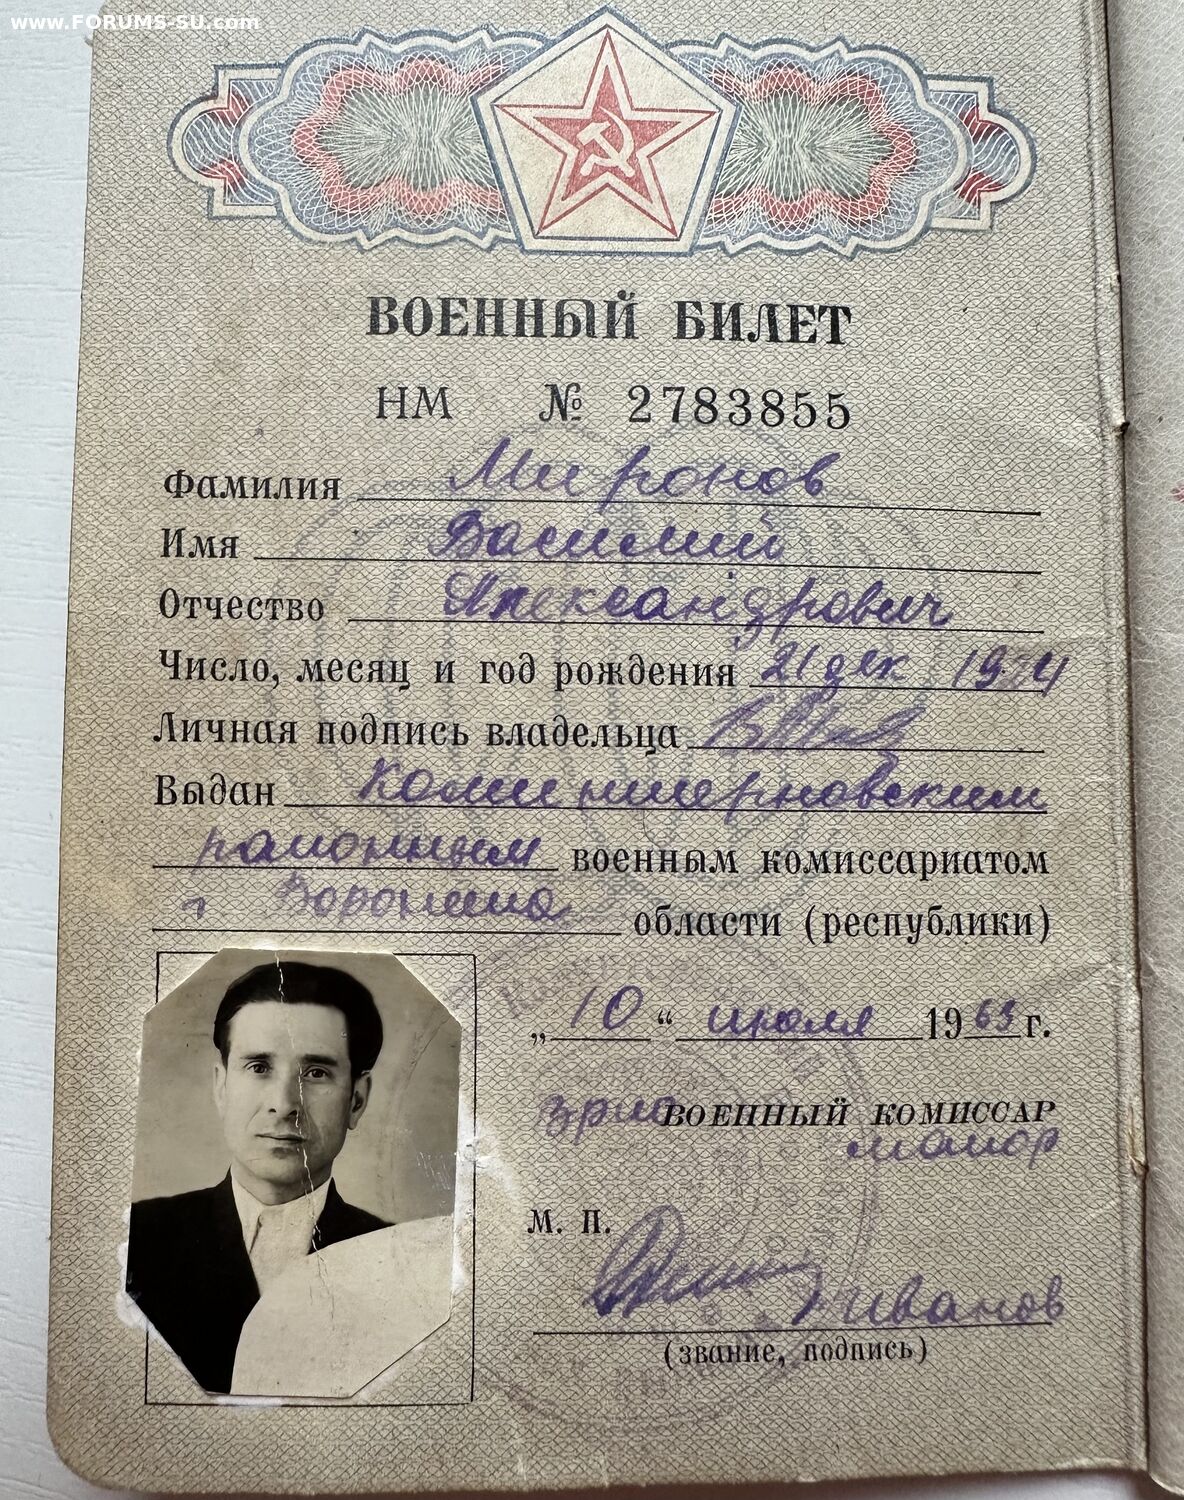 www.FORUMS-SU.com
ВОЕННЫЙ БИЛЕТ
НМ № 2783855
Фамилия Миронов
Имя Василий
Отчество Александрович
Число, месяц и год рождения 21 дек 1924
Личная подпись владельца
Выдан Коминтерновским
районным военным комиссариатом
г Воронежа области (республики)
„ 10 “ июля 1963 г.
ВОЕННЫЙ КОМИССАР
майор
М. П.
Иванов
(звание, подпись)